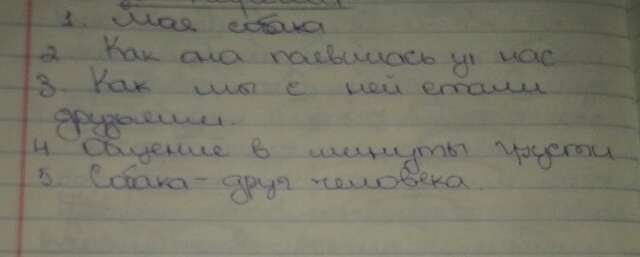 1. Моя собака
2 Как она паевилась у нас
3. Как мы с ней стали
друзьями.
4 Общение в минуты грусти
5. Собака - друг человека.